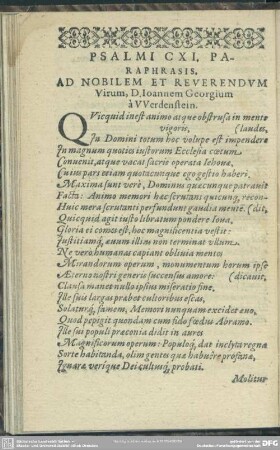 PSALMI CXI. PA-
RAPHRASIS.
AD NOBILEM ET REVERENDVM
Virum, D. Ioannem Georgium
à VVerdenstein.
QVicquid inest animo atque obstrusa in mente
vigoris, (laudes,
In Domini totum hoc volupe est impendere
In magnum quoties iustorum Ecclesia cœtum
Convenit, atque vacat sacris operata Iehovæ,
Cui in parte etiam quotacunque ego gestio haberi.
Maxima sunt verò, Dominus quæcunque patravit
Facta: Animo memori hæc scrutans quicunque, recon-
Huic mera scrutanti perfundunt gaudia mentē. (dit,
Quicquid agit iusto libratum pondere Iova,
Gloria ei comes est, hoc magnificentia vestit:
Iustitiamque, ævum illi non terminat ullum.
Ne verò humanas capiant oblivia mentes
Mirandorum operum, monumentum horum ipse
Æternæ nostri generis succensus amore: (dicavit,
Clausa manet nullo ipsius miseratio fine.
Ille suis largas præbet cultoribus escas,
Solaturque famem, Memori nunquam excidet ævo,
Quod pepigit quondam cum fido fœdus Abramo.
Ille sui populi præconia didit in aures
Magnificorum operum: Populoque dat inclyta regna
Sorte habitanda, olim gentes quæ habuêre profanæ,
Ignaræ verique Dei cultusque probati.
Molitur